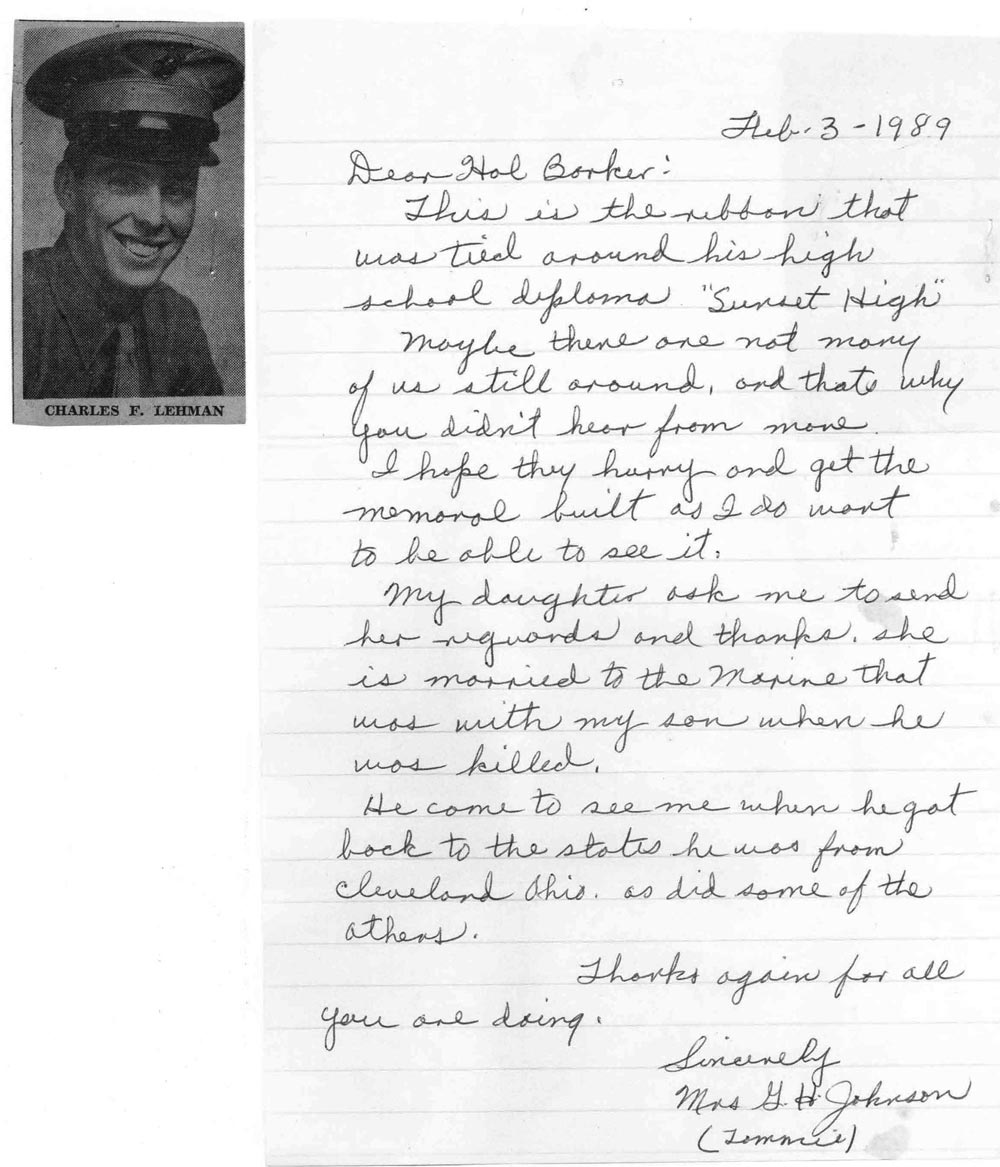 CHARLES F. LEHMAN
Feb. 3 - 1989
Dear Hal Barker:
This is the ribbon that
was tied around his high
school diploma "Sunset High"
Maybe there are not many
of us still around, and thats why
you didn't hear from more.
I hope they hurry and get the
memoral built as I do want
to be able to see it.
My daughter ask me to send
her reguards and thanks. she
is married to the Marine that
was with my son when he
was killed.
He come to see me when he got
back to the states he was from
Cleveland Ohio. as did some of the
others.
Thanks again for all
you are doing.
Sincerely
Mrs G. H. Johnson
(Tommie)